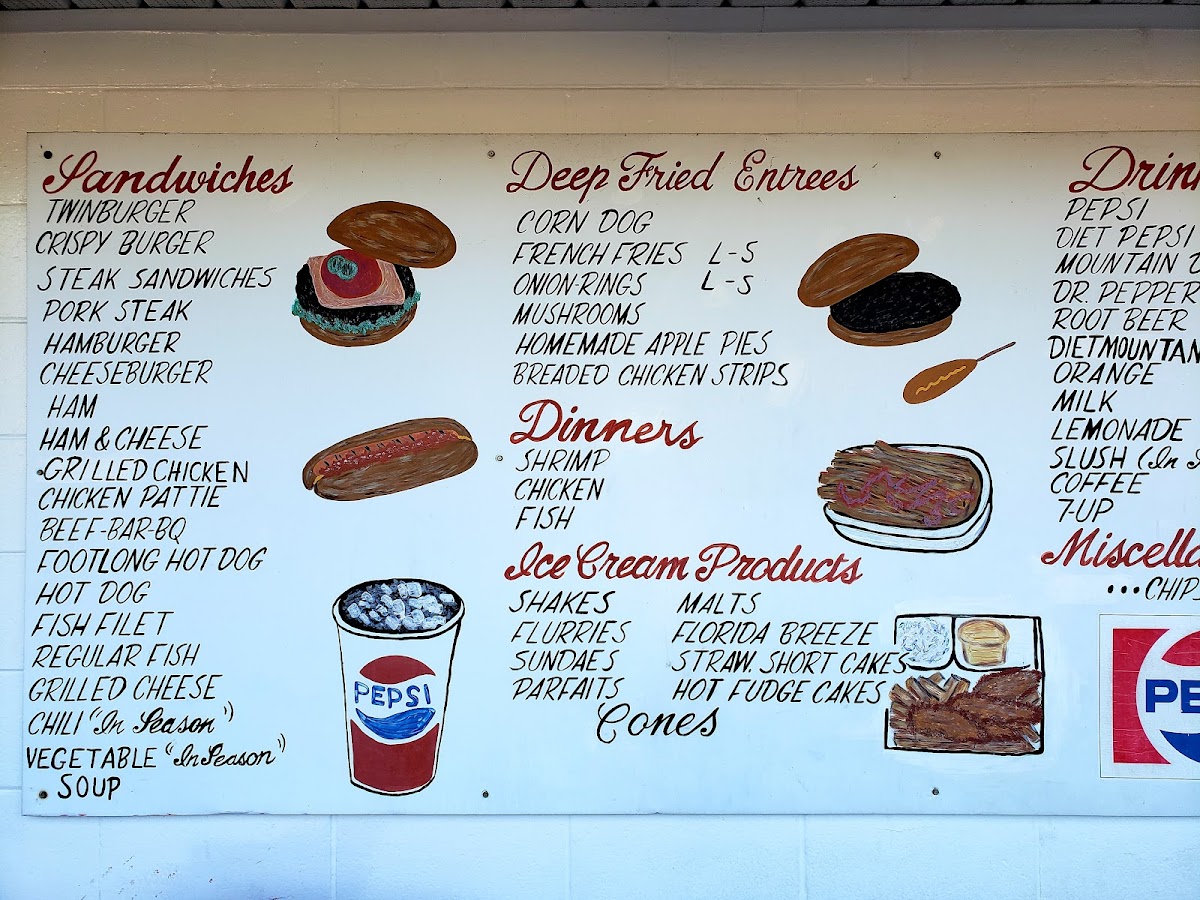 Sandwiches
TWINBURGER
CRISPY BURGER
STEAK SANDWICHES
PORK STEAK
HAMBURGER
CHEESEBURGER
HAM
HAM & CHEESE
GRILLED CHICKEN
CHICKEN PATTIE
BEEF-BAR-BQ
FOOTLONG HOT DOG
HOT DOG
FISH FILET
REGULAR FISH
GRILLED CHEESE
CHILI "In Season"
VEGETABLE "In Season"
SOUP
PEPSI
Deep Fried Entrees
CORN DOG
FRENCH FRIES L-S
ONION-RINGS L-S
MUSHROOMS
HOMEMADE APPLE PIES
BREADED CHICKEN STRIPS
Dinners
SHRIMP
CHICKEN
FISH
Ice Cream Products
SHAKES MALTS
FLURRIES FLORIDA BREEZE
SUNDAES STRAW. SHORT CAKES
PARFAITS HOT FUDGE CAKES
Cones
Drin
PEPSI
DIET PEPSI
MOUNTAIN
DR. PEPPER
ROOT BEER
DIET MOUNTAN
ORANGE
MILK
LEMONADE
SLUSH (In
COFFEE
7-UP
Miscella
...CHIPS
PE